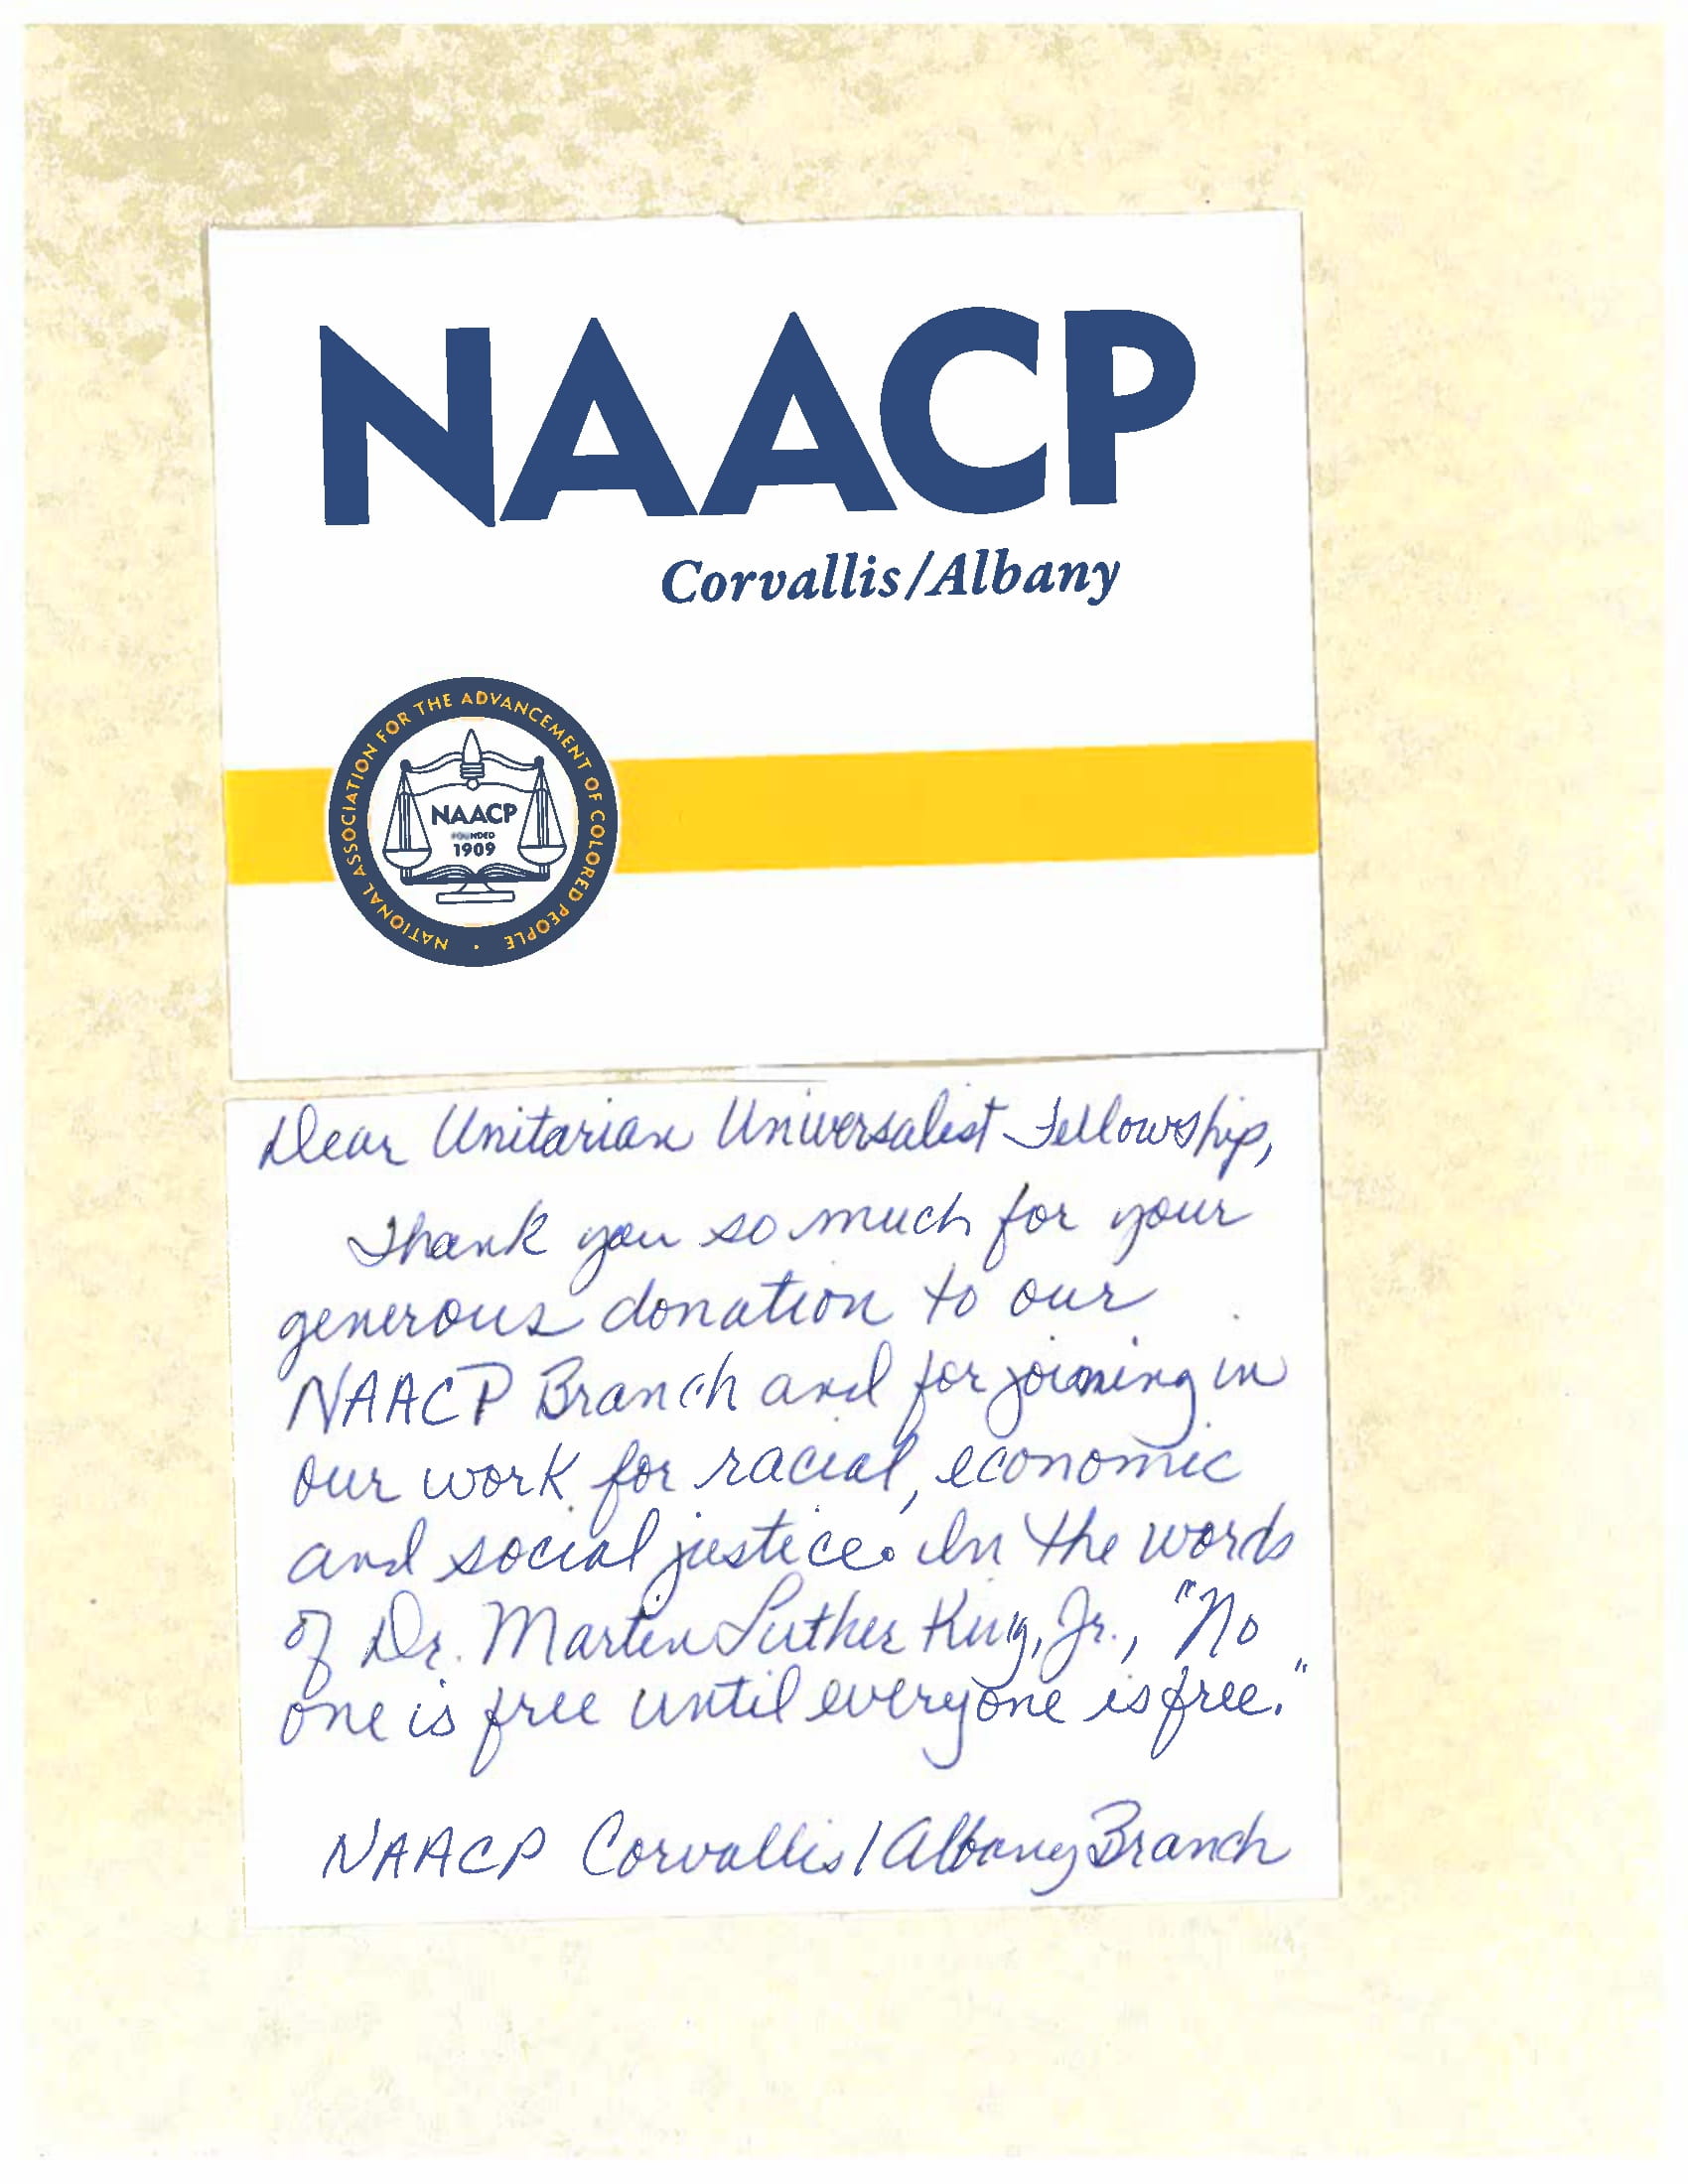 NAACP
Corvallis/Albany
NATIONAL ASSOCIATION FOR THE ADVANCEMENT OF COLORED PEOPLE
NAACP
FOUNDED
1909
Dear Unitarian Universalist Fellowship,
Thank you so much for your
generous donation to our
NAACP Branch and for joining in
our work for racial, economic
and social justice. In the words
of Dr. Martin Luther King, Jr., "No
one is free until everyone is free."
NAACP Corvallis/Albany Branch